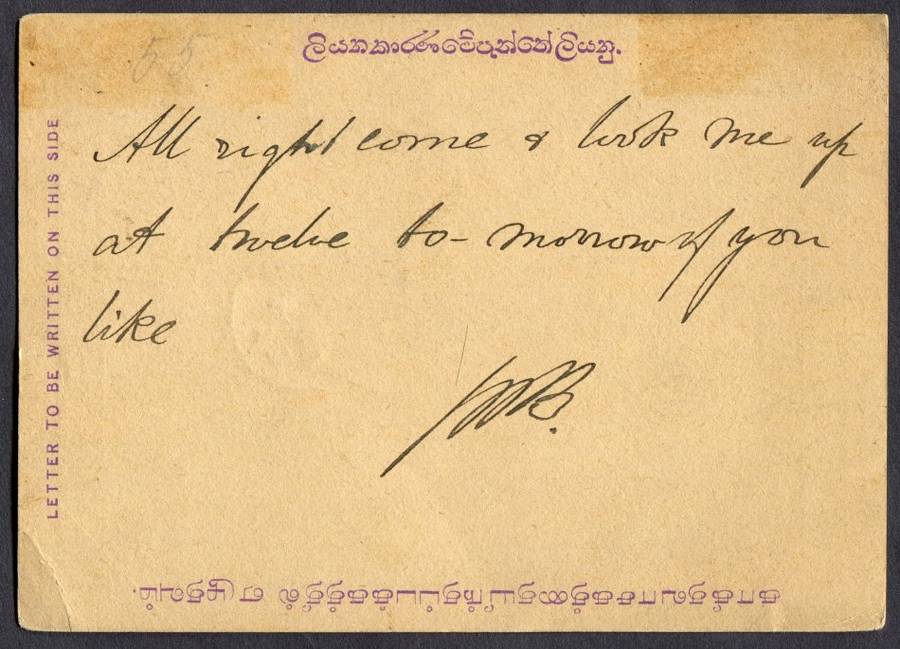 ලියනකාරණමේපුන්තේලියනු.
55
LETTER TO BE WRITTEN ON THIS SIDE
All right come & look me up
at twelve to-morrow if you
like